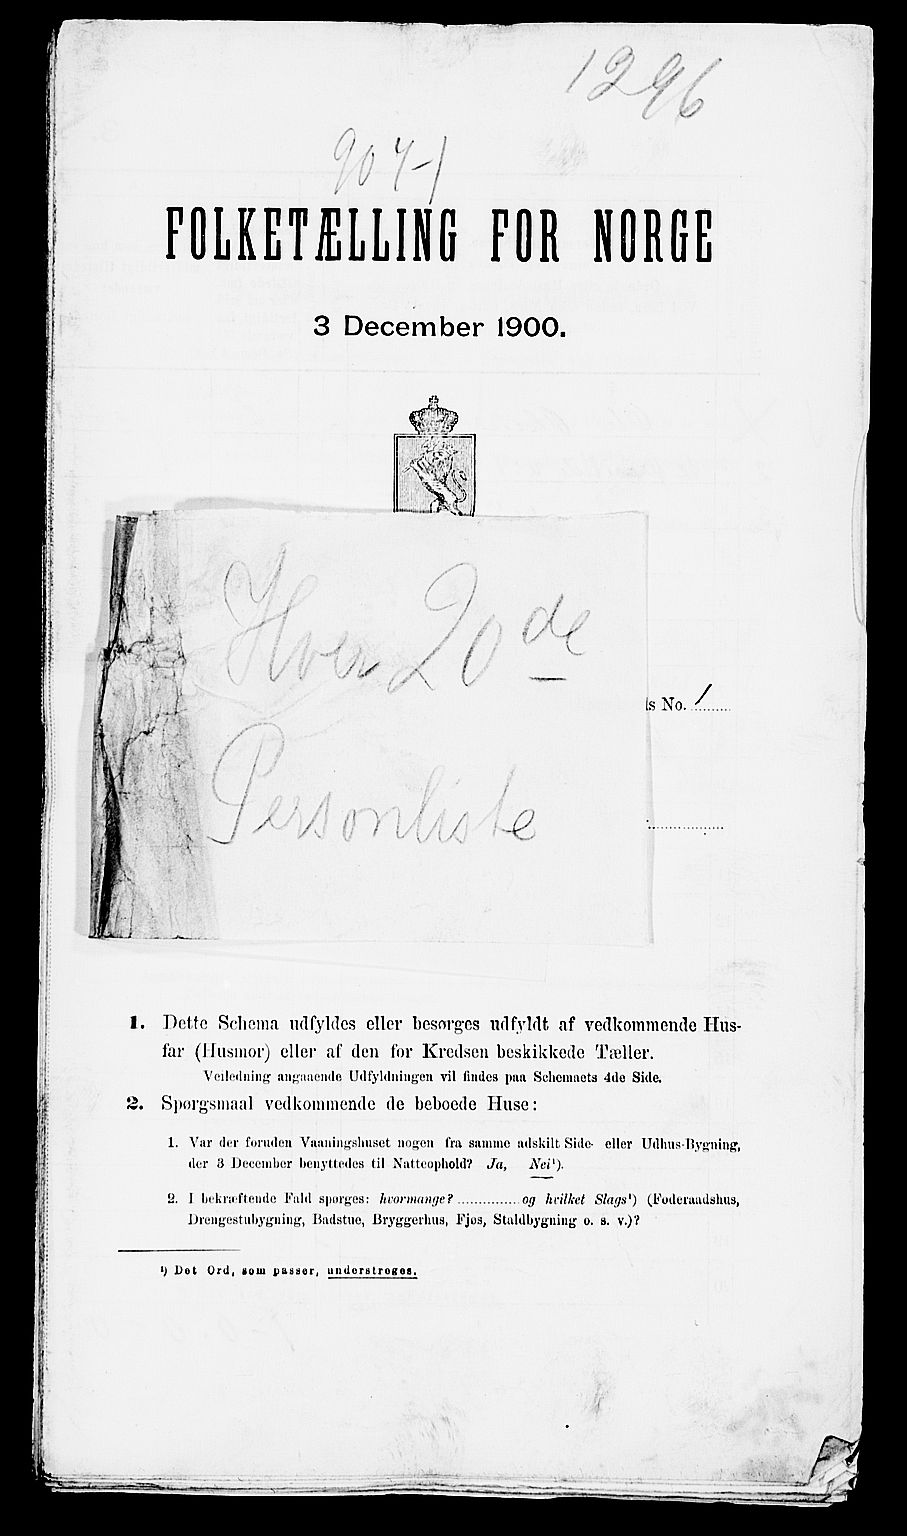 1296
904-1
FOLKETÆLLING FOR NORGE
3 December 1900.
Hver 20de
s No. 1
Personliste
1. Dette Schema udfyldes eller besørges udfyldt af vedkommende Hus-
far (Husmor) eller af den for Kredsen beskikkede Tæller.
Veiledning angaaende Udfyldningen vil findes paa Schemaets 4de Side.
2. Spørgsmaal vedkommende de beboede Huse:
1. Var der foruden Vaaningshuset nogen fra samme adskilt Side- eller Udhus-Bygning,
der 3 December benyttedes til Natteophold? Ja, Nei¹).
2. I bekræftende Fald spørges: hvormange? ............... og hvilket Slags¹) (Føderaadshus,
Drengestubygning, Badstue, Bryggerhus, Fjøs, Staldbygning o. s. v.)?
¹) Det Ord, som passer, understreges.